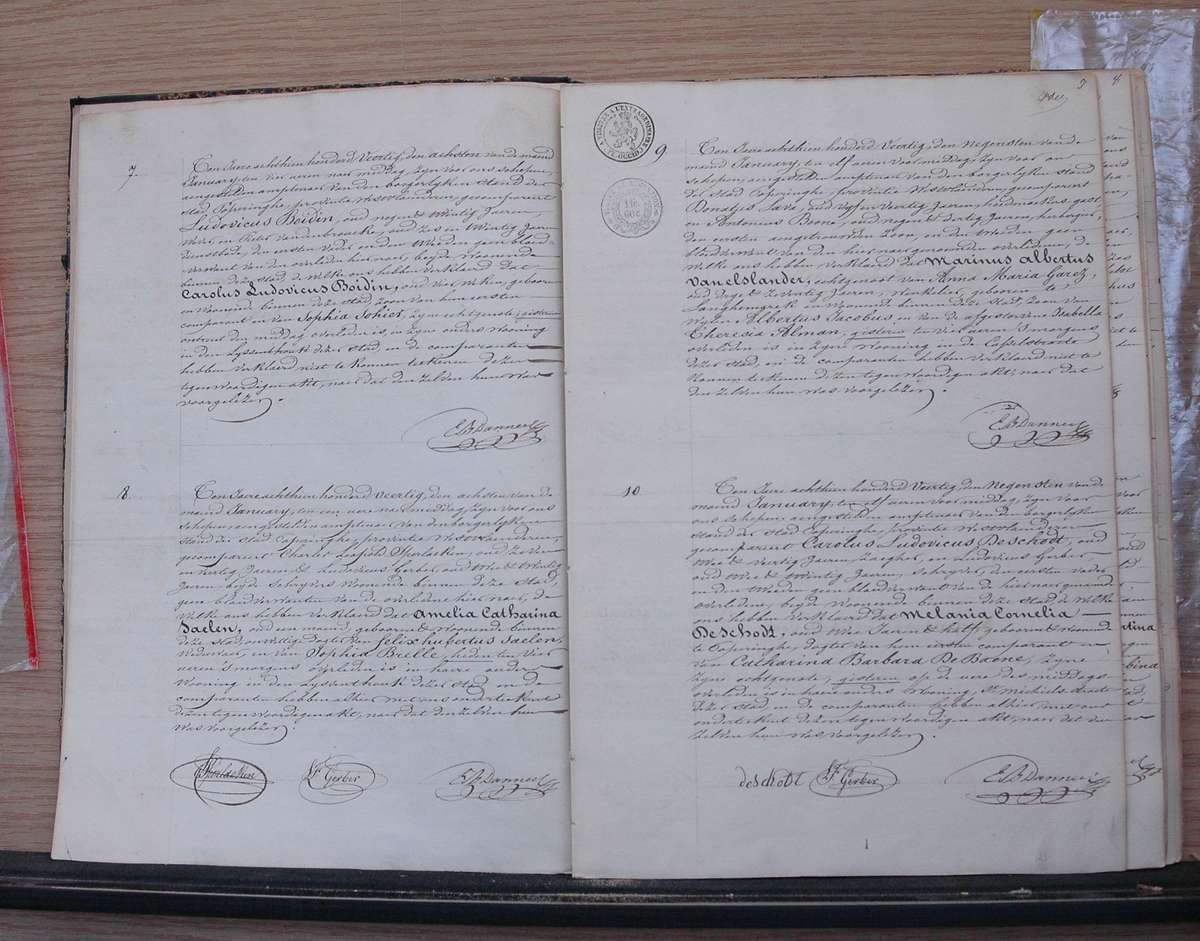 7
Ten Jaere achthien honderd Veertig, den achsten van de maend
January, ten vier uren naer middag, zyn voor ons schepene,
aengestelden amptenaer van den borgerlyken stand der
stad Poperinghe, provintie Westvlaenderen, gecompareert
Ludovicus Boidin, oud negen & twintig Jaeren,
wever, en Pieter Vandenbroucke, oud zes en twintig Jaeren
dienstbode, den eersten vader en den tweeden geen bloed-
verwant van den overleden hier naer, beyde woonende
binnen deze stad, de welke ons hebben verklaerd dat
Carolus Ludovicus Boidin, oud vier weken, geboren
en woonende binnen deze stad, zoon van hun eersten
comparant en van Sophia Sohier, zyne echtgenote, gisteren
ontrent den middag overleden is, in zyne ouders wooning
in den Eysenthouk dezer stad en de comparanten
hebben verklaerd niet te konnen teekenen dezen
tegenwoordigen akt, naer dat den zelven hun was
voorgelezen.
E. B. Danneel
8
Ten Jaere achthien honderd Veertig, den achsten van de
maend January, ten een ure naer middag, zyn voor ons
schepene, aengestelden amptenaer van den borgerlyken
stand der stad Poperinghe, provintie Westvlaenderen,
gecompareert Charles Leopold, oud zeven
en veertig Jaeren, & Ludovicus Gerber, oud twee & twintig
Jaeren, beyde schryvers woonende binnen deze stad
geen bloedverwanten van de overledene hier naer, de
welke ons hebben verklaerd dat Amelia Catharina
Saelen, oud maend, geboren & woonende binnen
deze stad, dogter van felix hubertus Saelen,
en van Sophia Brille, heden ten vier
uren s'morgens overleden is in haere ouders
wooning in den Eysenthouk dezer stad en de
comparanten hebben alhier met ons onderteekend
dezen tegenwoordigen akt, naer dat den zelven hun
was voorgelezen.
F Gerber
E. B. Danneel
3
9
Ten Jaere achthien honderd Veertig, den Negensten van de
maend January, ten elf uren voor middag, zyn voor ons
schepene, aengestelden amptenaer van den borgerlyken stand
der stad Poperinghe, provintie Westvlaenderen, gecompareert
Donatus Save, oud vyf en veertig Jaeren,
en Antonius Boone, oud negen & dertig Jaeren, herbergier,
den eersten aengetrouwden zoon, en den tweeden geen
bloedverwant van den hier naergenoemden overleden, de
welke ons hebben verklaerd dat Marinus albertus
vanelslander, echtgenoot van Anna Maria Garez,
oud & zeventig Jaeren, winkelier, geboren te
Langhemarck & woonende binnen deze stad, zoon van
wylen Albertus Jacobus en van de afgestorvene Isabella
Theresia Alman, gisteren ten vier uren s'morgens
overleden is in zyne wooning in de
dezer stad, en de comparanten hebben verklaerd niet te
konnen teekenen dezen tegenwoordigen akt, naer dat
den zelven hun was voorgelezen.
E. B. Danneel
10
Ten Jaere achthien honderd Veertig, den Negensten van de
maend January, ten elf uren voor middag, zyn voor
ons schepene, aengestelden amptenaer van den borgerlyken
stand der stad Poperinghe, provintie Westvlaenderen,
gecompareert Carolus Ludovicus Deschodt, oud
twee & veertig Jaeren, en Ludovicus Gerber
oud twee & twintig Jaeren, schryver, den eersten vader
en den tweeden geen bloedverwant van de hier naer genaemde
overledene, beyde woonende binnen deze stad, de welke
ons hebben verklaerd dat Melania Cornelia
Deschodt, oud twee Jaeren & half, geboren & woonende
te Poperinghe, dogter van hun eersten comparant en
van Catharina Barbara De Baene, zyne
echtgenote, gisteren op de uere des middags
overleden is in haere ouders wooning, St Michiels straete
dezer stad en de comparanten hebben alhier met ons
onderteekend dezen tegenwoordigen akt, naer dat den
zelven hun was voorgelezen.
deschodt
F Gerber
E. B. Danneel